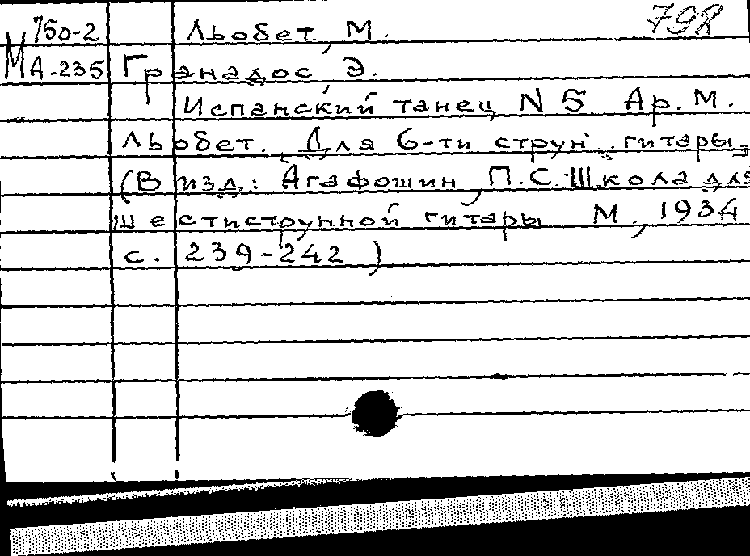 750-2 Льобет, М. 798
М А-235 Гранадос, Э.
Испанский танец N 5 Ар. М.
Льобет. Для 6-ти струн. гитары.
(В изд: Агафошин, П.С. Школа для
шестиструнной гитары М., 1934
с. 239-242)